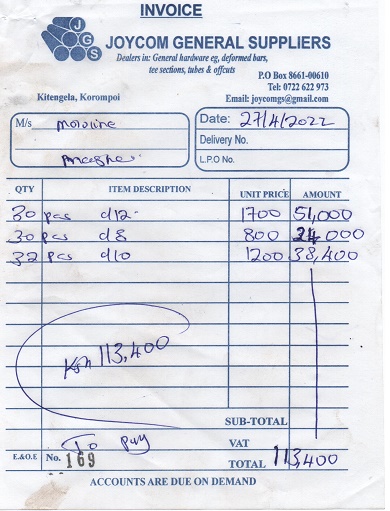 INVOICE
JGS
JOYCOM GENERAL SUPPLIERS
Dealers in: General hardware eg, deformed bars,
tee sections, tubes & offcuts
P.O Box 8661-00610
Tel: 0722 622 973
Kitengela, Korompoi
Email: joycomgs@gmail.com
M/s
Date: 27/4/2022
Delivery No.
L.P.O No.
QTY ITEM DESCRIPTION UNIT PRICE AMOUNT
30 pcs d12 1700 51,000
30 pcs d8 800 24 000
32 pcs d10 1200 38,400
Ksh 113,400
SUB-TOTAL
To pay
VAT
E.&O.E No. 169
TOTAL 113,400
ACCOUNTS ARE DUE ON DEMAND